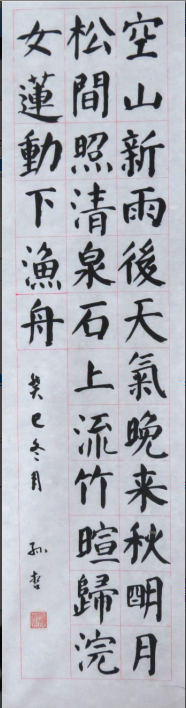 空山新雨後天氣晚来秋明月
松間照清泉石上流竹暄歸浣
女蓮動下漁舟
癸巳冬月 孙哲